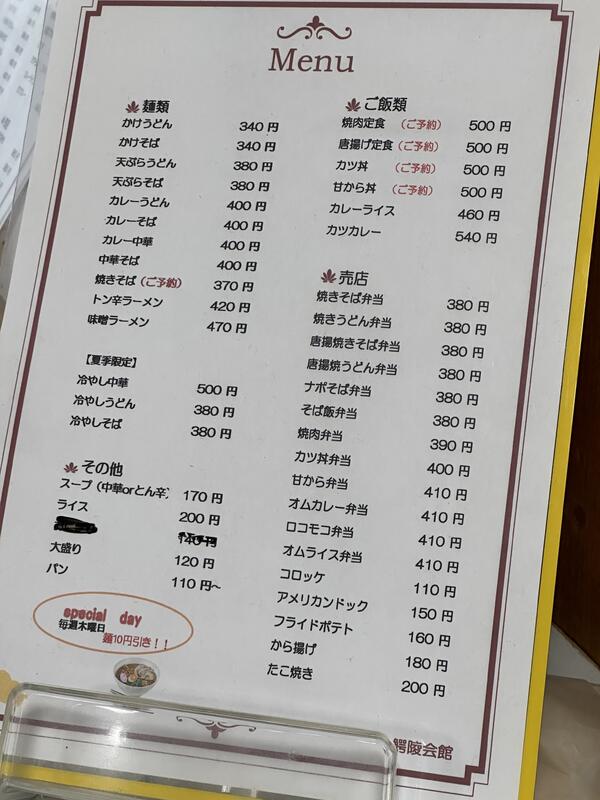 Menu
麺類
かけうどん 340円
かけそば 340円
天ぷらうどん 380円
天ぷらそば 380円
カレーうどん 400円
カレーそば 400円
カレー中華 400円
中華そば 400円
焼きそば（ご予約） 370円
トン辛ラーメン 420円
味噌ラーメン 470円
【夏季限定】
冷やし中華 500円
冷やしうどん 380円
冷やしそば 380円
その他
スープ（中華orとん辛） 170円
ライス 200円
大盛り 120円
パン 110円～
special day
毎週木曜日
麺10円引き！！
ご飯類
焼肉定食 （ご予約） 500円
唐揚げ定食（ご予約） 500円
カツ丼 （ご予約） 500円
甘から丼 （ご予約） 500円
カレーライス 460円
カツカレー 540円
売店
焼きそば弁当 380円
焼きうどん弁当 380円
唐揚焼きそば弁当 380円
唐揚焼うどん弁当 380円
ナポそば弁当 380円
そば飯弁当 380円
焼肉弁当 390円
カツ丼弁当 400円
甘から弁当 410円
オムカレー弁当 410円
ロコモコ弁当 410円
オムライス弁当 410円
コロッケ 110円
アメリカンドック 150円
フライドポテト 160円
から揚げ 180円
たこ焼き 200円
鰐陵会館